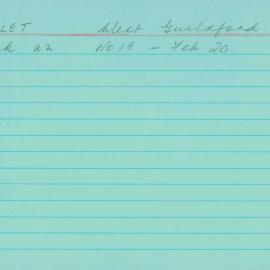 LET West Guildford
k a2 No 19 - Feb 20